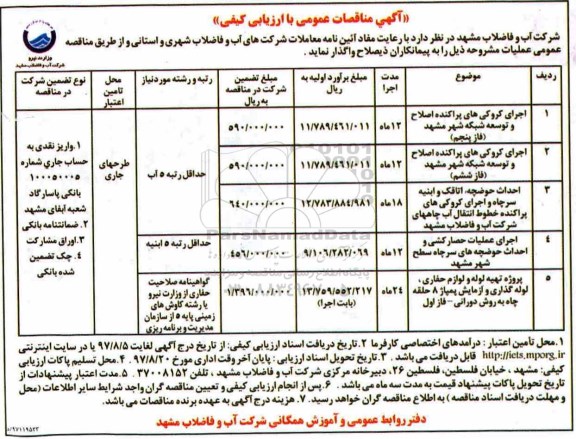 «آگهي مناقصات عمومی با ارزیابی کیفی»
شرکت آب و فاضلاب مشهد در نظر دارد با رعایت مفاد آئین نامه معاملات شرکت های آب و فاضلاب شهری و استانی و از طریق مناقصه
عمومی عملیات مشروحه ذیل را به پیمانکاران ذیصلاح واگذار نماید.
وزارت نیرو
شرکت آب و فاضلاب مشهد
ردیف | موضوع | مدت اجرا | مبلغ برآورد اولیه به ریال | مبلغ تضمین شرکت در مناقصه به ریال | رتبه و رشته مورد نیاز | محل تامین اعتبار | نوع تضمین شرکت در مناقصه
۱ | اجرای کروکی های پراکنده اصلاح و توسعه شبکه شهر مشهد (فاز پنجم) | ۱۲ماه | ۱۱/۷۸۹/۴۶۱/۰۱۱ | ۵۹۰/۰۰۰/۰۰۰ | حداقل رتبه ۵ آب
۲ | اجرای کروکی های پراکنده اصلاح و توسعه شبکه شهر مشهد (فاز ششم) | ۱۲ماه | ۱۱/۷۸۹/۴۶۱/۰۱۱ | ۵۹۰/۰۰۰/۰۰۰
۳ | احداث حوضچه، اتاقک و ابنیه سرچاه و اجرای کروکی های پراکنده خطوط انتقال آب چاههای شرکت آب و فاضلاب مشهد | ۱۸ماه | ۱۲/۷۸۳/۸۸۴/۹۸۱ | ۶۴۰/۰۰۰/۰۰۰
۴ | اجرای عملیات حصارکشی و احداث حوضچه های سرچاه سطح شهر مشهد | ۱۲ماه | ۹/۱۰۶/۲۸۲/۰۶۹ | ۴۵۶/۰۰۰/۰۰۰ | حداقل رتبه ۵ ابنیه
۵ | پروژه تهیه لوله و لوازم حفاری، لوله گذاری و ازمایش پمپاژ ۸ حلقه چاه به روش دورانی – فاز اول | ۲۴ماه | ۱۳/۷۵۹/۵۵۲/۲۱۷ (بابت اجرا) | ۱/۳۹۶/۰۰۰/۰۰۰ | گواهینامه صلاحیت حفاری از وزارت نیرو یا رشته کاوش های زمینی پایه ۵ از سازمان مدیریت و برنامه ریزی
طرحهای جاری
۱.واریز نقدی به حساب جاري شماره ۱۰۰۰۵۰۰۰۵ بانکی پاسارگاد شعبه ابفای مشهد
۲. ضمانتنامه بانکی
۳.اوراق مشارکت
۴. چک تضمین شده بانکی
۱.محل تأمین اعتبار : درآمدهای اختصاصی کارفرما ۲.تاریخ دریافت اسناد ارزیابی کیفی: از تاریخ درج آگهی لغایت ۹۷/۸/۵ یا در سایت اینترنتی
http://iets.mporg.ir قابل دریافت می باشد . ۳.تاریخ تحویل اسناد ارزیابی : پایان آخر وقت اداری مورخ ۹۷/۸/۲۰ . ۴.محل تسلیم پاکات ارزیابی
کیفی: مشهد، خیابان فلسطین، فلسطین ۲۶، دبیرخانه مرکزی شرکت آب و فاضلاب مشهد ، تلفن ۳۷۰۰۸۱۵۲ . ۵.مدت اعتبار پیشنهادات از
تاریخ تحویل پاکات پیشنهاد قیمت به مدت سه ماه می باشد . ۶. پس از انجام ارزیابی کیفی و تعیین مناقصه گران واجد شرایط سایر اطلاعات (محل
و مهلت دریافت اسناد مناقصه) به اطلاع مناقصه گران خواهد رسید. ۷. هزینه درج آگهی به عهده برنده مناقصات می باشد.
دفتر روابط عمومی و آموزش همگانی شرکت آب و فاضلاب مشهد